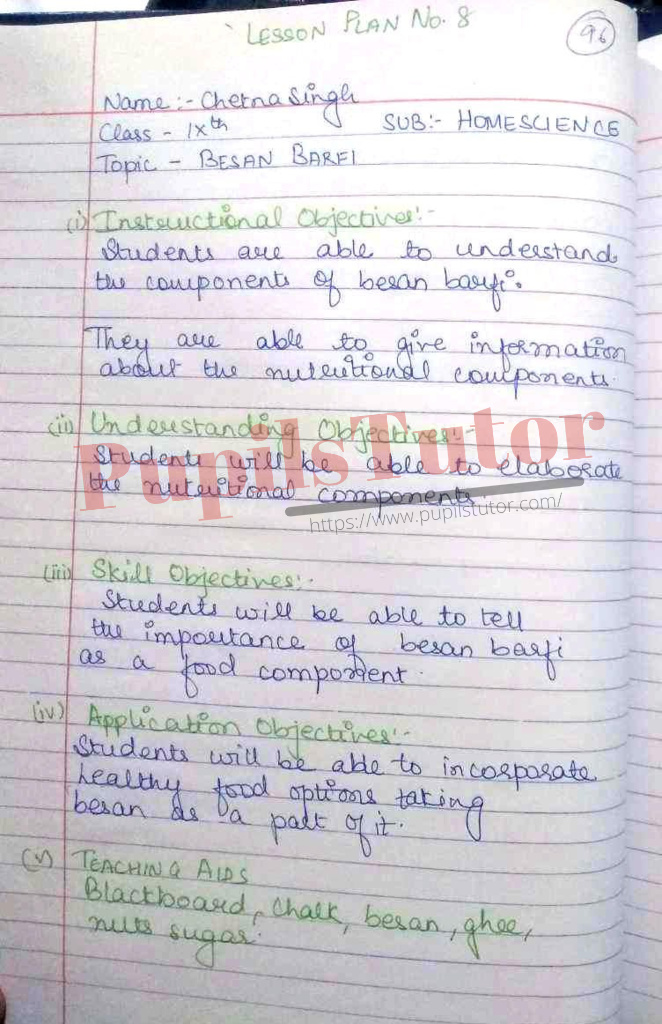 LESSON PLAN No. 8
96
Name:- Chetna Singh
Class - IXth SUB:- HOMESCIENCE
Topic - BESAN BARFI
(i) Instructional Objectives:-
Students are able to understand
the components of besan barfi.
They are able to give information
about the nutritional components.
(ii) Understanding Objectives:-
Students will be able to elaborate
the nutritional components.
PupilsTutor
https://www.pupilstutor.com/
(iii) Skill Objectives:-
Students will be able to tell
the importance of besan barfi
as a food component.
(iv) Application Objectives:-
Students will be able to incorporate
healthy food options taking
besan as a part of it.
(v) TEACHING AIDS
Blackboard, chalk, besan, ghee,
nuts sugar.